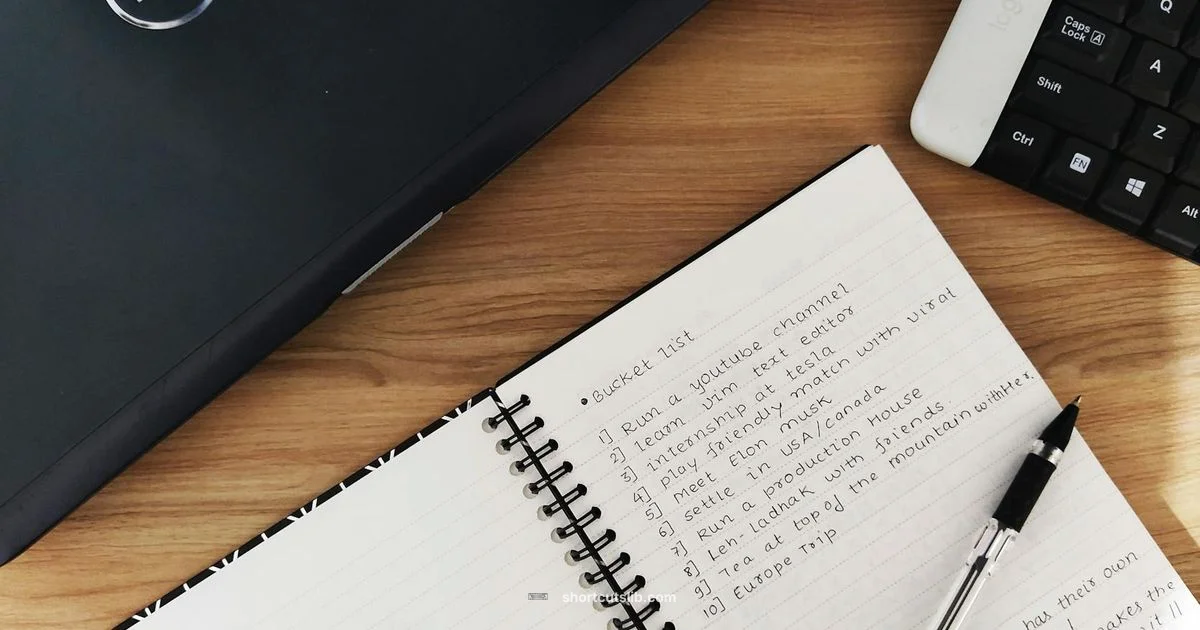 Caps Lock A
Q
A
Shift
Z
Ctrl
FN
Alt
• Bucket list
1] Run a youtube channel
2] learn vim text editor
3] internship at tesla
4] play friendly match with virat
5] Meet Elon musk
6] settle in USA/canada
7] Run a production House
8] Leh-ladhak with friends
9] Tea at top of the mountain with Her.
10] Europe Trip
has their own
makes the
it ll
shortcutslib.com